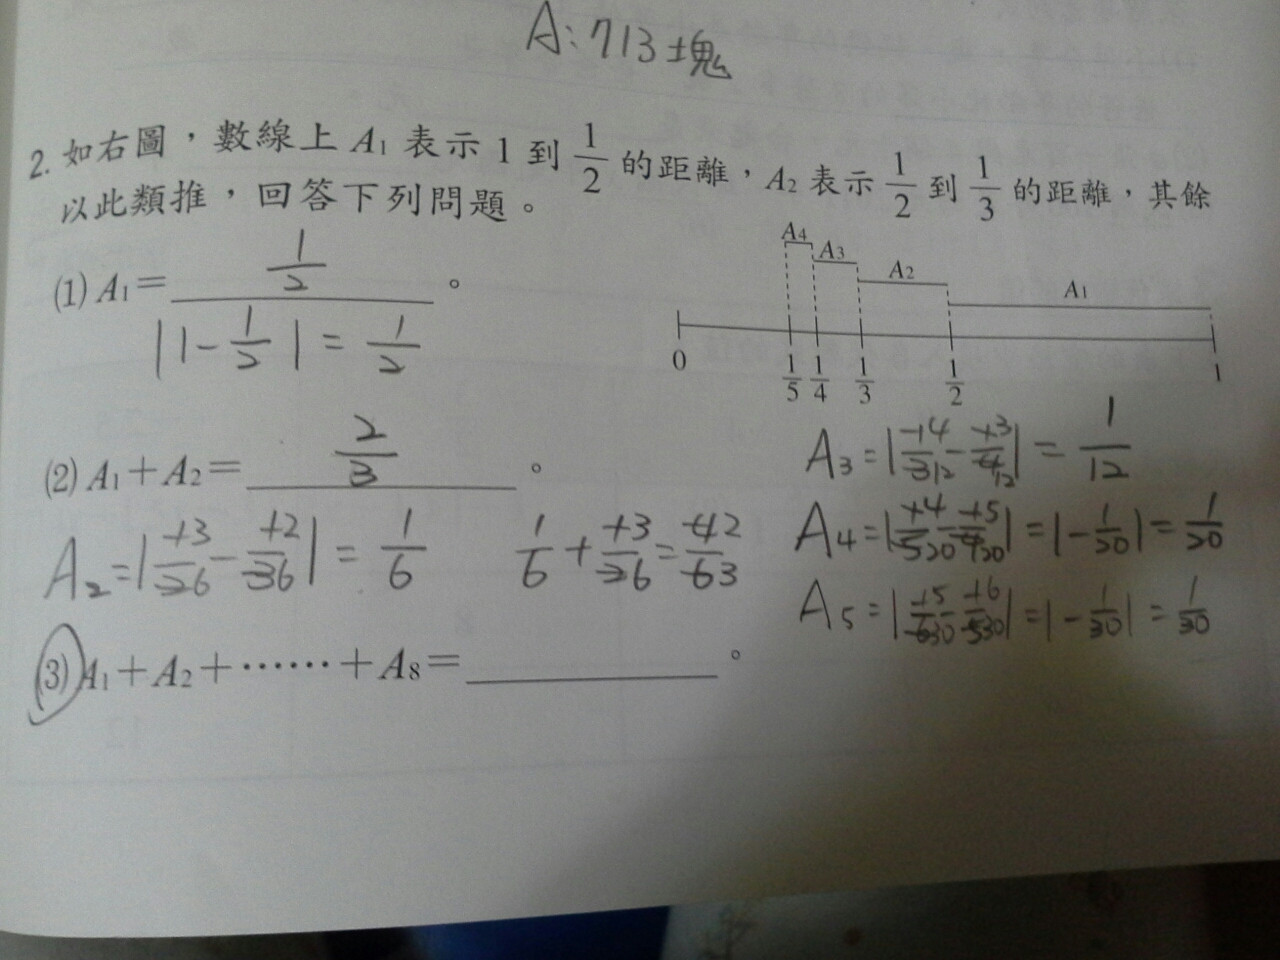 A:713塊
2. 如右圖,數線上 A₁ 表示 1 到 1/2 的距離,A₂ 表示 1/2 到 1/3 的距離,其餘
以此類推,回答下列問題。
A₄
A₃
A₂
A₁
0 1/5 1/4 1/3 1/2 1
(1) A₁= 1/2 。
|1-1/2| = 1/2
(2) A₁+A₂= 2/3 。
A₂=|1/2 3/6 - 1/3 2/6| = 1/6
1/6 + 1/2 3/6 = 4/6 2/3
A₃=|1/3 4/12 - 1/4 3/12| = 1/12
A₄=|1/5 4/20 - 1/4 5/20| = |-1/20| = 1/20
A₅=|1/6 5/30 - 1/5 6/30| = |-1/30| = 1/30
(3) A₁+A₂+……+A₈= 。